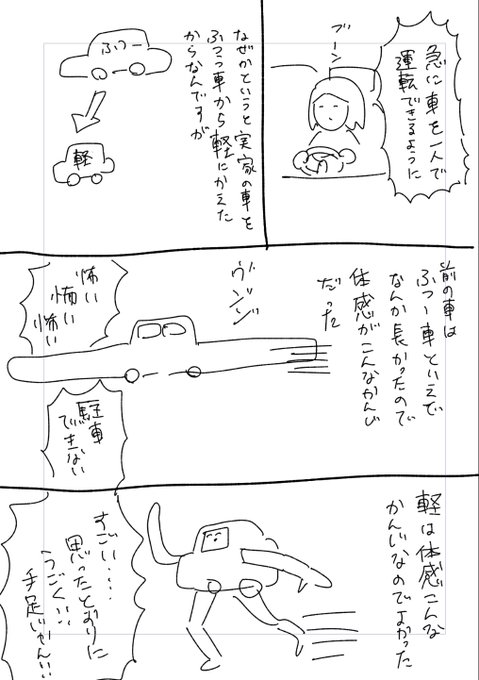 急に車を一人で
運転できるように
ブーン
なぜかというと実家の車を
ふつー車から軽にかえた
からなんですが
ふつー
軽
前の車は
ふつー車といえど
なんか長かったので
体感がこんなかんじ
だった
ヴンン
怖い
怖い
怖い
駐車
できない
軽は体感こんな
かんじなのでよかった
すごい‥‥
思ったとおりに
うごく‥‥
手足じゃん‥‥